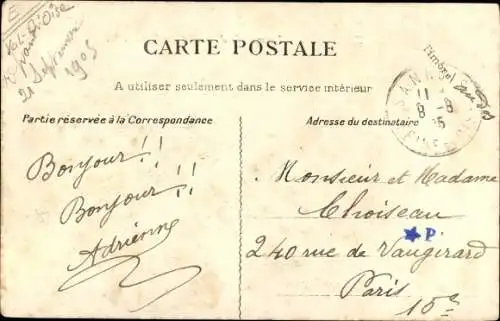 E
Val-d'Oise
21 Septembre
1905
CARTE POSTALE
Timbre
au dos
A utiliser seulement dans le service intérieur
SANNOIS
11
8-8
05
Partie réservée à la Correspondance
Adresse du destinataire
Bonjour!!
Bonjour!!
Adrienne
Monsieur et Madame
Choiseau
240 rue de Vaugirard
P
Paris
15e